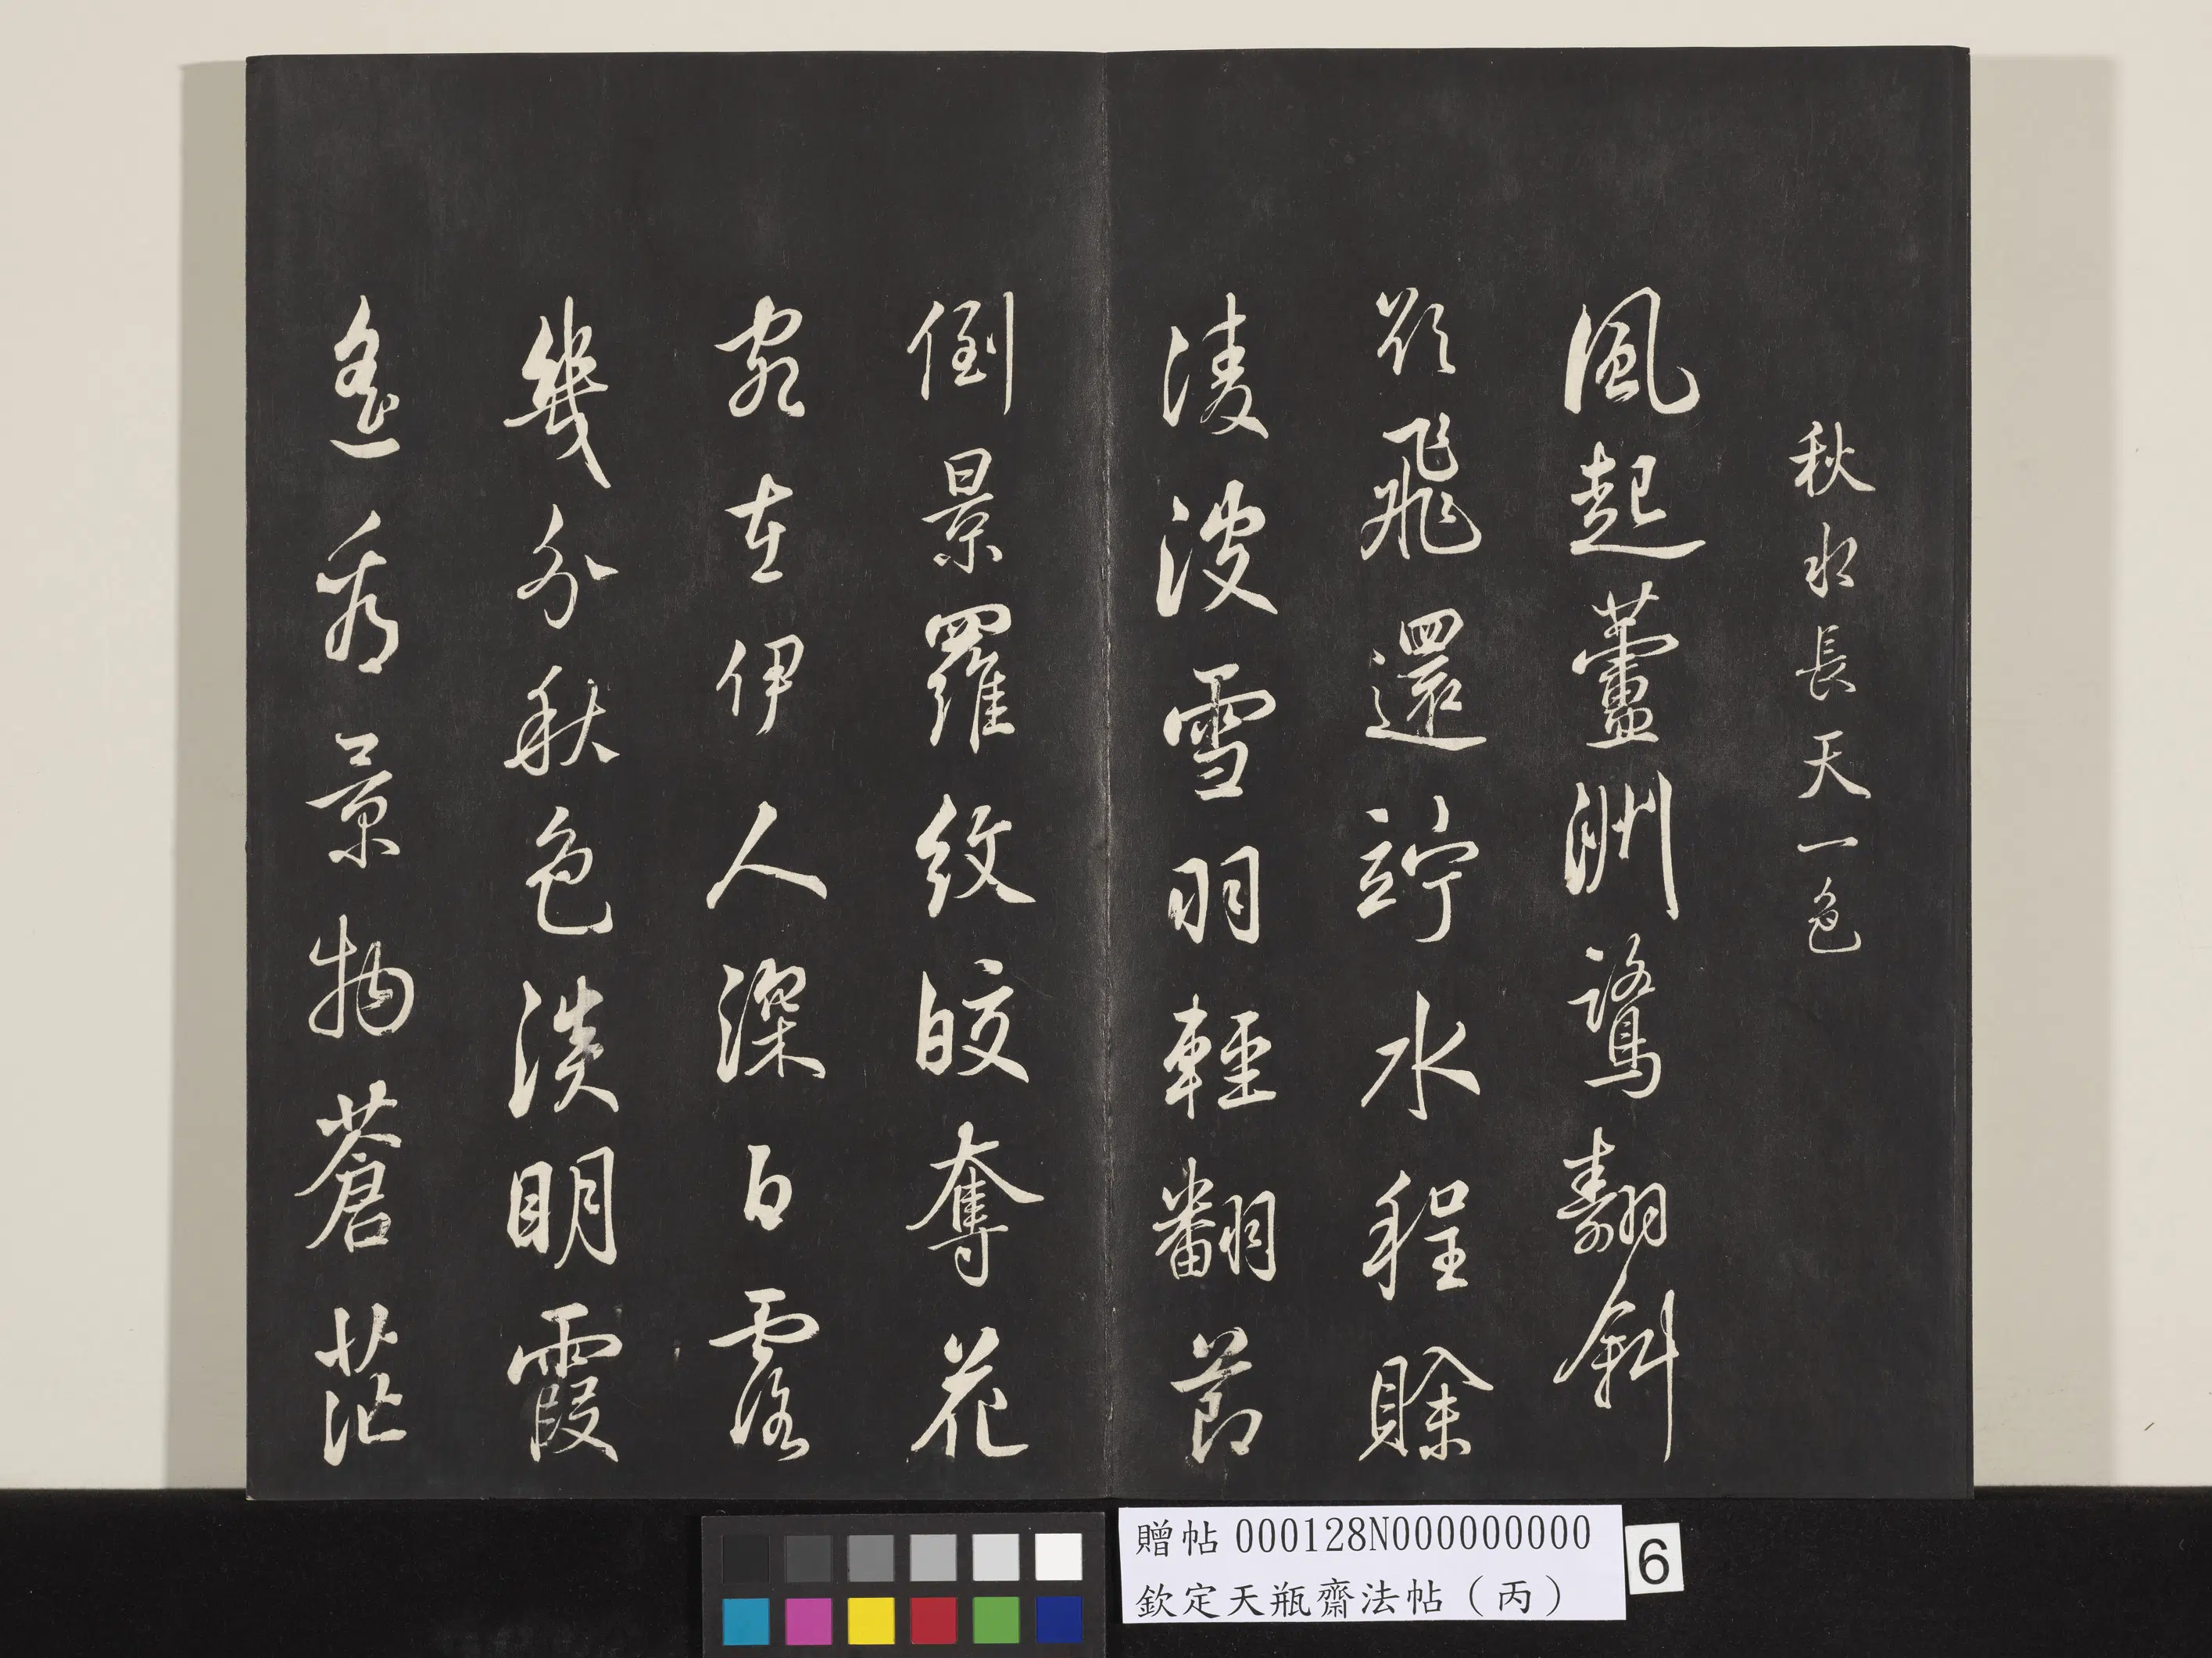 秋水長天一色
風起蘆洲鷺翿斜
欲飛還竚水程賒
淩波雪羽輕翻節
倒景羅紋皎奪花
宛在伊人深白露
幾分秋色淡明霞
遙看景物蒼茫
贈帖 000128N000000000
欽定天瓶齋法帖（丙）
6